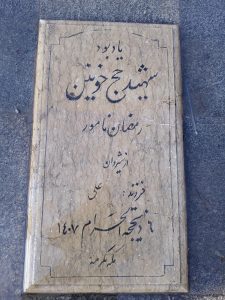 یادبود
شهید حج خونین
رمضان نامور
از شیروان
فرزند: علی
۶ ذیحجه الحرام ۱۴۰۷
مکه مکرمه